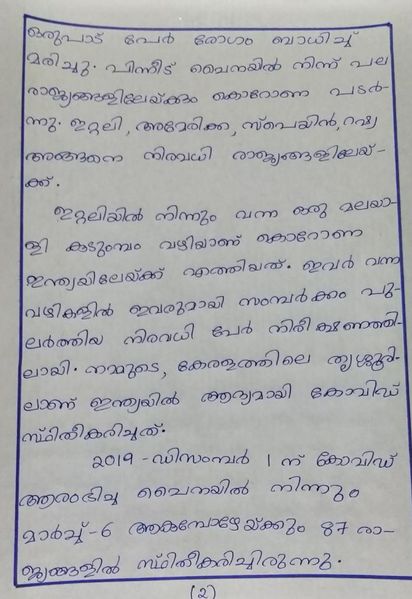 ഒരുപാട് പേർ രോഗം ബാധിച്ച്
മരിച്ചു. പിന്നീട് ചൈനയിൽ നിന്ന് പല
രാജ്യങ്ങളിലേയ്ക്കും കൊറോണ പടർ-
ന്നു. ഇറ്റലി, അമേരിക്ക, സ്പെയിൻ, റഷ്യ
അങ്ങനെ നിരവധി രാജ്യങ്ങളിലേയ്-
ക്ക്.
ഇറ്റലിയിൽ നിന്നും വന്ന ഒരു മലയാ-
ളി കുടുംമ്പം വഴിയാണ് കൊറോണ
ഇന്ത്യയിലേയ്ക്ക് എത്തിയത്. ഇവർ വന്ന
വഴികളിൽ ഇവരുമായി സംമ്പർക്കം പു-
ലർത്തിയ നിരവധി പേർ നിരീക്ഷണത്തി-
ലായി. നമ്മുടെ, കേരളത്തിലെ തൃശ്ശൂരി-
ലാണ് ഇന്ത്യയിൽ ആദ്യമായി കോവിഡ്
സ്ഥിതീകരിച്ചത്.
2019 -ഡിസംമ്പർ 1 ന് കോവിഡ്
ആരംഭിച്ച ചൈനയിൽ നിന്നും
മാർച്ച്-6 ആകുമ്പോഴേയ്ക്കും 87 രാ-
ജ്യങ്ങളിൽ സ്ഥിതീകരിച്ചിരുന്നു.
(2)